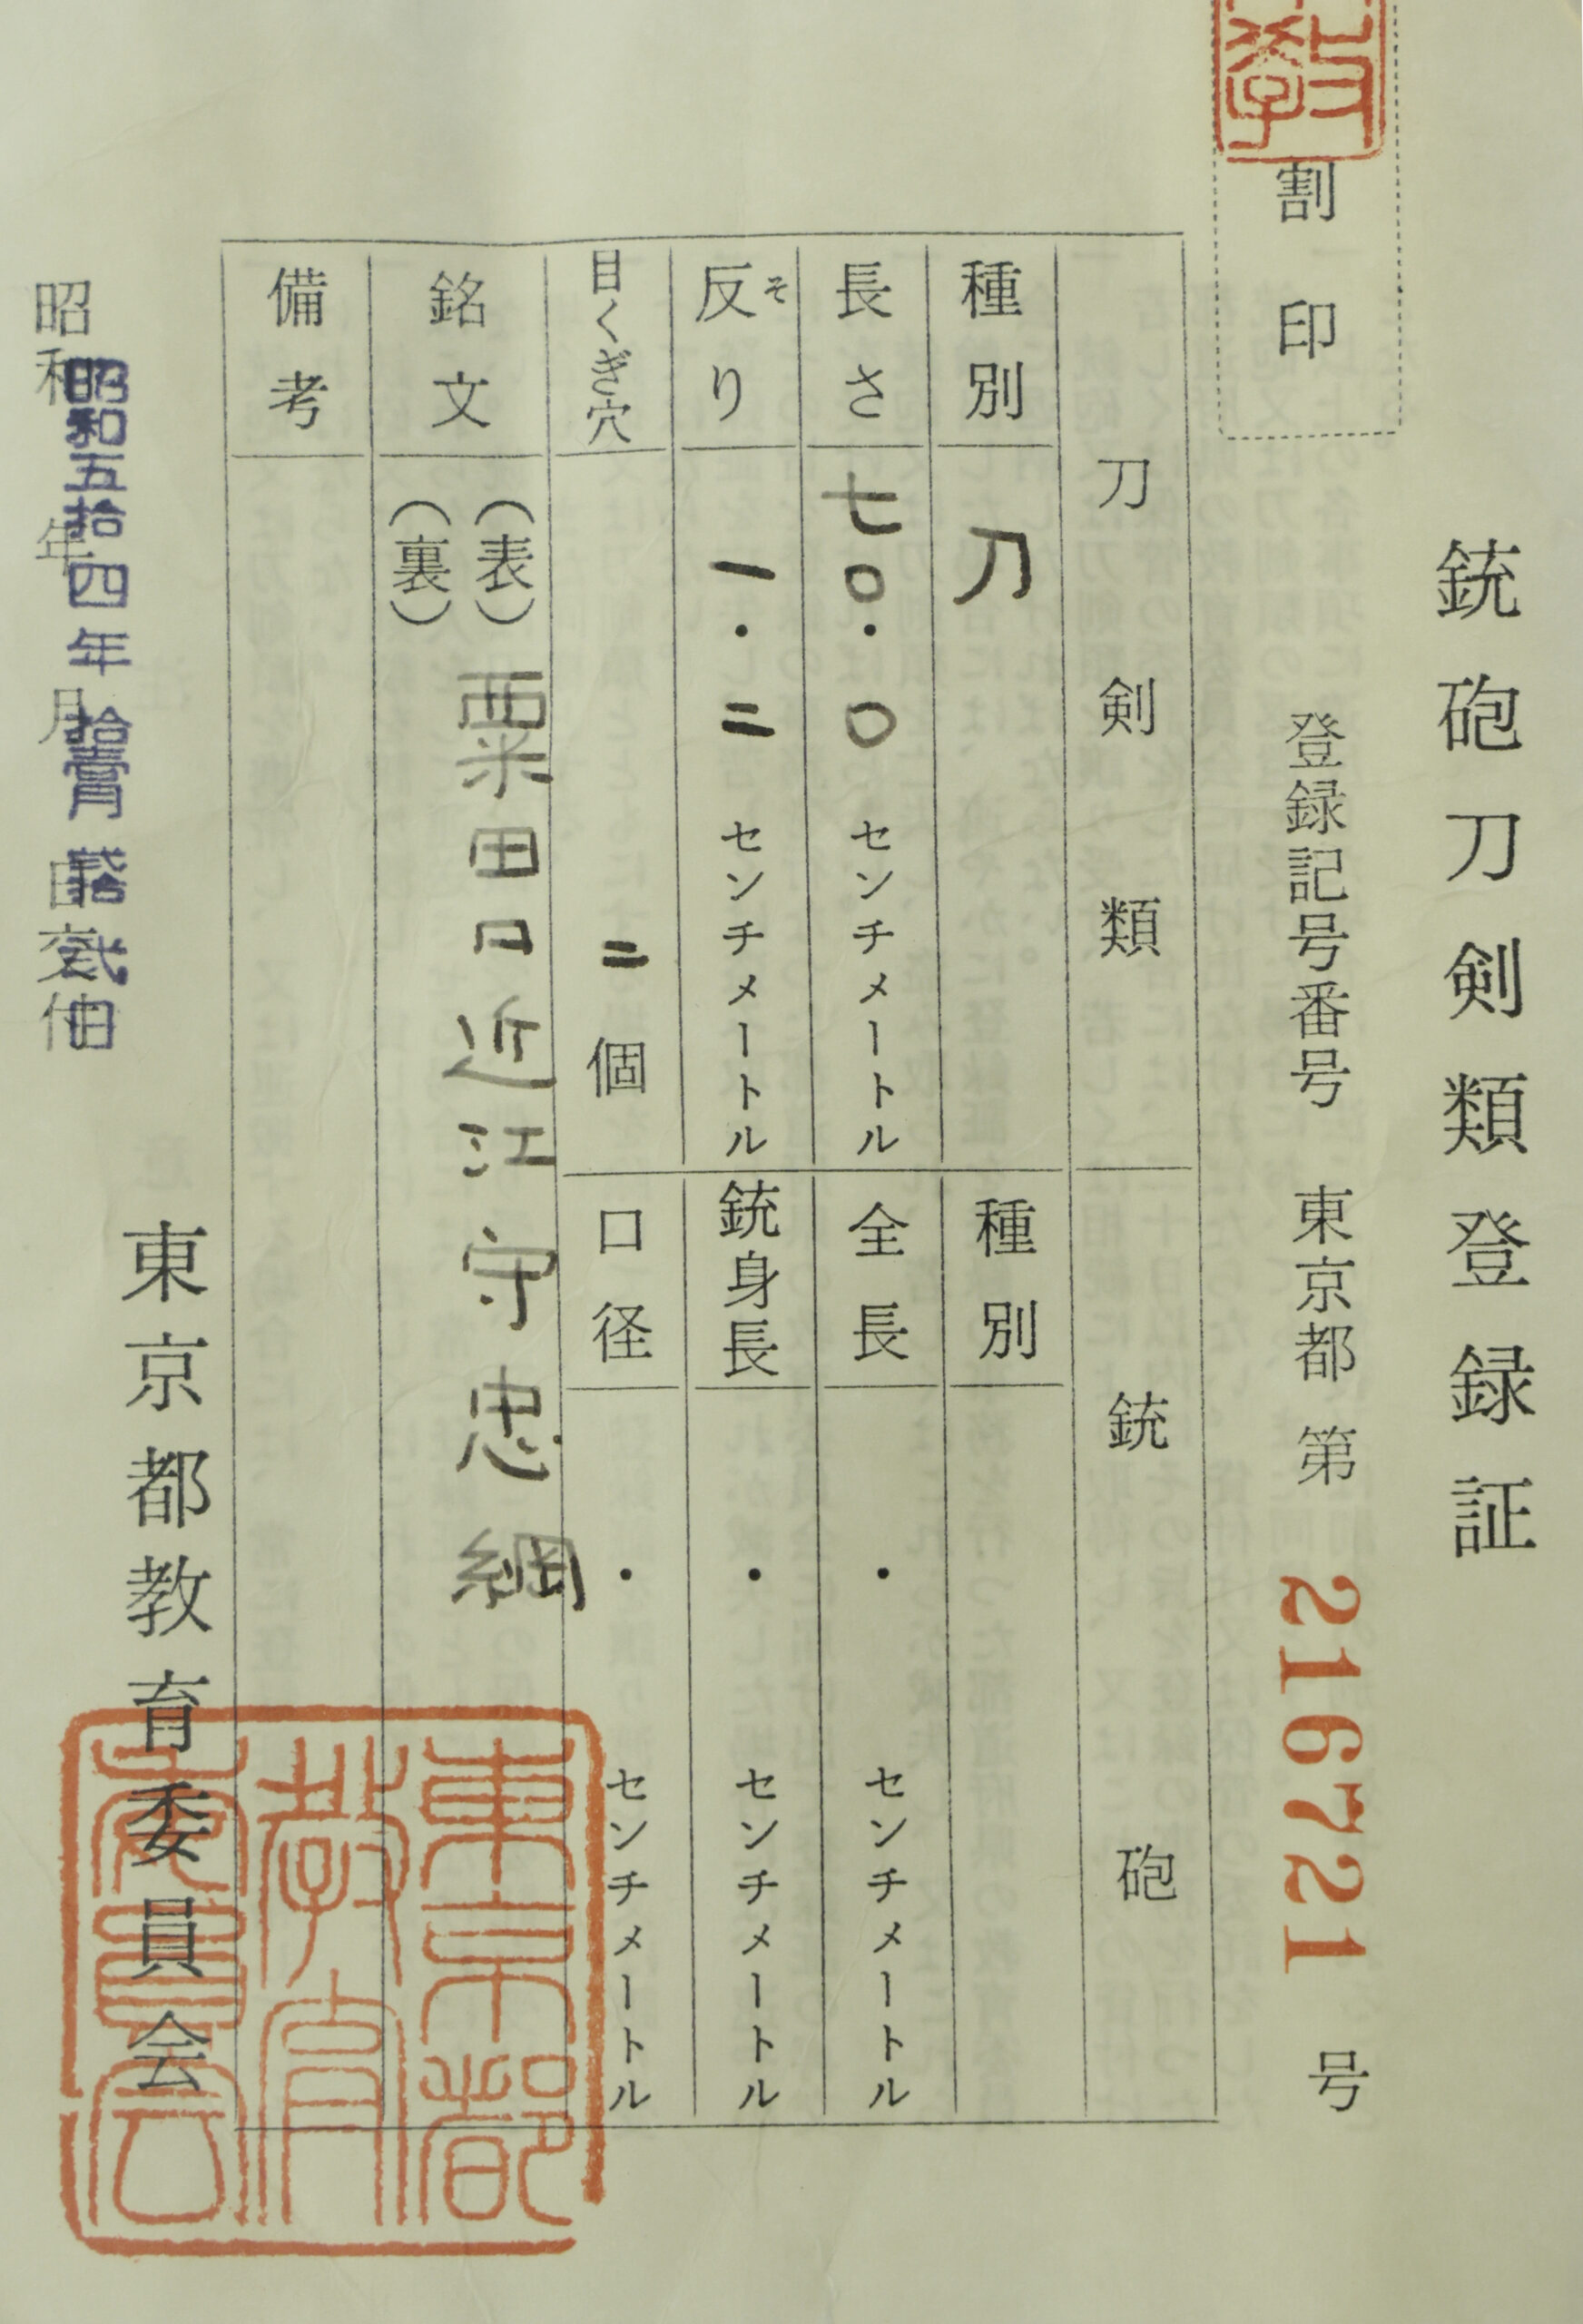 銃砲刀剣類登録証
登録記号番号 東京都 第 216721 号
割印
刀剣類
種別 刀
長さ 七〇・〇 センチメートル
反り そ 一・二 センチメートル
目くぎ穴 二 個
銃砲
種別
全長 ・ センチメートル
銃身長 ・ センチメートル
口径 ・ センチメートル
銘文 (表) 粟田口近江守忠綱
(裏)
備考
昭和 年 月 日交付
昭和五拾四年
東京都教育委員会
東京都
教育
委員会